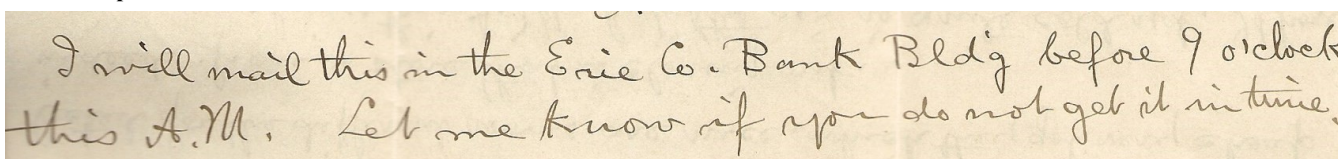 I will mail this in the Erie Co. Bank Bldg before 9 o'clock
this A.M. Let me know if you do not get it in time.